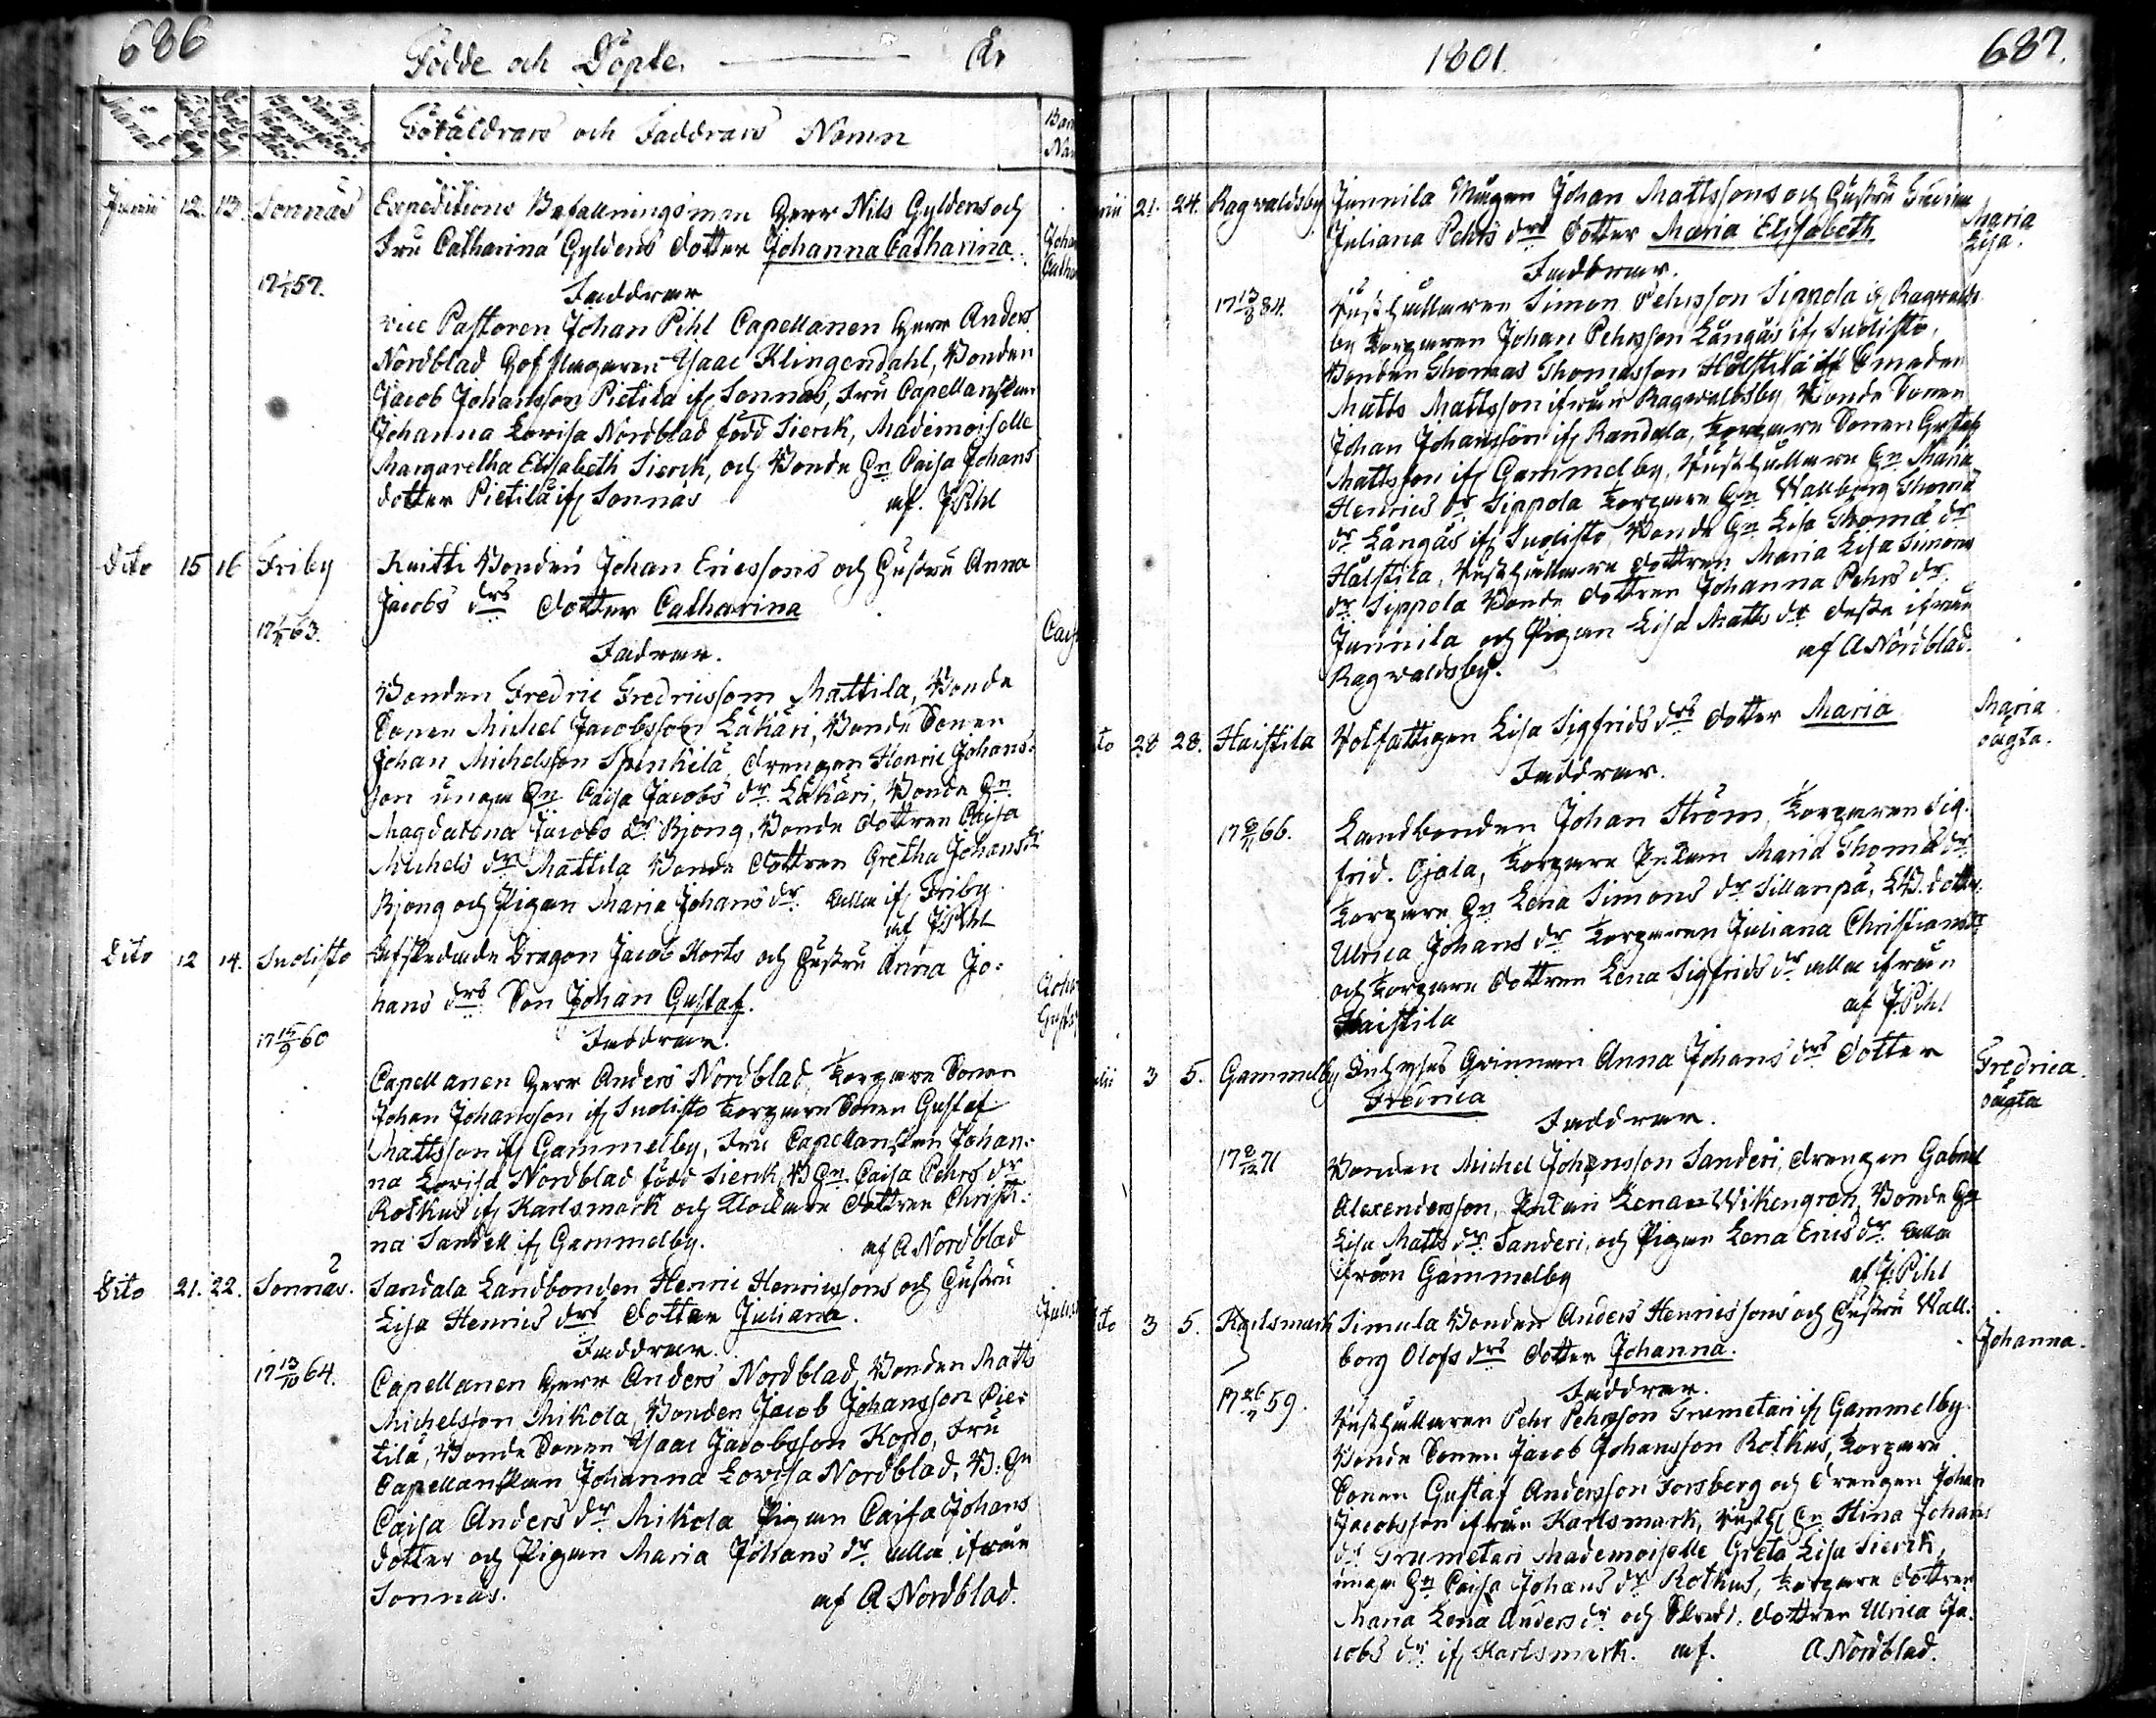 686
Födde och Döpte. År
Månad
Föräldrars och Faddrars Namn
Junii 12. 13. Sonnäs Expeditions Befallningsman Herr Nils Gyldens och
Fru Catharina Gyldens dotter Johanna Catharina.
17 57. Faddrar
vice Pastoren Johan Pihl Capellanen Herr Anders
Nordblad Hofslagaren Isaac Klingendahl, Bonden
Jacob Johansson Pietilä ifr Sonnäs, Fru Capellanskan
Johanna Lovisa Nordblad född Sierck, Mademoiselle
Margaretha Elisabeth Sierck, och Bonde Hn Caisa Johans
dotter Pietilä ifr Sonnäs af. J Pihl
Dito 15 16 Friby Knitti Bonden Johan Ericssons och Hustru Anna
Jacobs drs dotter Catharina
17 63. Fadrar.
Bonden Fredric Fredricsson Mattila, Bonde
Sonen Michel Jacobsson Läkäri, Bonde Sonen
Johan Michelsson Spinkilä, drengen Henric Johans
son unga Hn Caisa Jacobs dr Läkäri, Bonde Hn
Magdalena Jacobs dr Bjong, Bonde dottren Caisa
Michels dr Mattila Bonde dottren Gretha Johans dr
Bjong och Pigan Maria Johans dr alla ifr Friby.
af J Pihl
Dito 12 14. Suolisto Afskedade Dragon Jacob Horts och Hustru Anna Jo:
hans drs Son Johan Gustaf.
17 15/9 60 Faddrar.
Capellanen Herr Anders Nordblad, Torpare Sonen
Johan Johansson ifr Suolisto Torpare Sonen Gustaf
Mattsson ifr Gammelby, Fru Capellanskan Johan:
na Lovisa Nordblad född Sierck, B Hn Caisa Pehrs dr
Rotkus ifr Karlsmark och Klockare dottren Christi:
na Sandell ifr Gammelby. af A Nordblad
Dito 21. 22. Sonnäs. Sandala Landbonden Henric Henricssons och Hustru
Lisa Henrics drs dotter Juliana.
17 13/10 64. Faddrar.
Capellanen Herr Anders Nordblad, Bonden Matts
Michelsson Mikola, Bonden Jacob Johansson Pie:
tilä, Bonde Sonen Isaac Jacobsson Kopo, Fru
Capellanskan Johanna Lovisa Nordblad, B. Hn
Caisa Anders dr Mikola Pigan Caisa Johans
dotter och Pigan Maria Johans dr alla ifrån
Sonnäs. af A Nordblad.
1801. 687.
21. 24. Ragvaldsby Junnila Mågen Johan Mattssons och Hustru
Juliana Pehrs drs dotter Maria Elisabeth Maria Lisa.
Faddrar.
17 13/8 84. Rusthållaren Simon Pehrsson Sippola ifr Ragvalds
by Torparen Johan Pehrsson Långås ifr Suolisto,
Bonden Thomas Thomasson Hålstila
Matts Mattsson ifrån Ragvaldsby, Bonde Sonen
Johan Johansson ifr Randala, Torpare Sonen Gustaf
Mattsson ifr Gammelby, Rusthållare Hn Maria
Henrics dr Sippola Torpare Hn Wallborg Thomæ
dr Långås ifr Suolisto, Bonde Hn Lisa Thomæ dr
Hålstila, Rusthållare dottren Maria Lisa Simons
dr Sippola Bonde dottren Johanna Pehrs dr
Junnila och Pigan Lisa Matts dr dessa ifrån
Ragvaldsby. af A Nordblad.
28 28. Haistila Volfattigen Lisa Sigfrids drs dotter Maria Maria oägta.
Faddrar.
17 66. Landbonden Johan Ström, Torparen Sig.
frid. Ojala, Torpare Enkan Maria Thomæ dr
Torpare Hn Lena Simons dr Sillanpä, LB. dotter
Ulrica Johans dr Torparen Juliana Christians dr
och Torpare dottren Lena Sigfrids dr alla ifrån
Haistila af J. Pihl
3 5. Gammelby Inhyses Qvinnan Anna Johans drs dotter Fredrica. oägta
Fredrica
Faddrar.
17 71 Bonden Michel Johansson Sanderi, drengen Gabriel
Alexandersson, Enkan Lena Wikengren, Bonde Hn
Lisa Matts dr Sanderi, och Pigan Lena Erics dr alla
ifrån Gammelby af J. Pihl
3 5. Karlsmark Simula Bonden Anders Henricssons och Hustru Wall:
borg Olofs drs dotter Johanna. Johanna.
17 26/7 59. Faddrar.
Rusthållaren Pehr Pehrsson Trumetari ifr Gammelby.
Bonde Sonen Jacob Johansson Rotkus, Torpare
Sonen Gustaf Andersson Forsberg och drengen Johan
Jacobsson ifrån Karlsmark, Rusth. Hn Stina Johans
dr Trumetari Mademoiselle Greta Lisa Sierck,
unga Hn Caisa Johans dr Rotkus, Torpare dottren
Maria Lena Anders dr och dottren Ulrica Ja:
cobs dr ifr Karlsmark. af. A Nordblad.